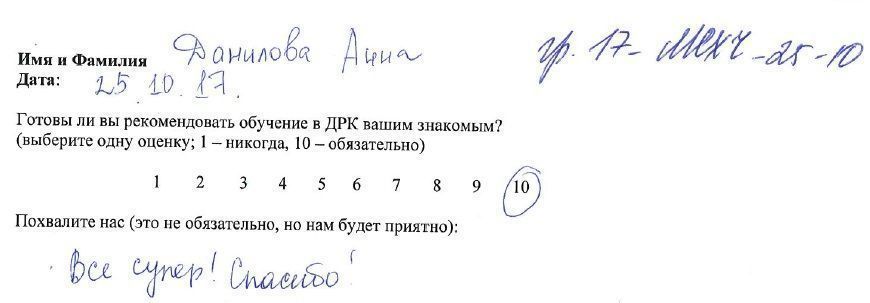 Имя и Фамилия Данилова Анна
гр. 17-МСХЧ-25-10
Дата: 25.10.17.
Готовы ли вы рекомендовать обучение в ДРК вашим знакомым?
(выберите одну оценку; 1 – никогда, 10 – обязательно)
1 2 3 4 5 6 7 8 9 10
Похвалите нас (это не обязательно, но нам будет приятно):
Все супер! Спасибо!